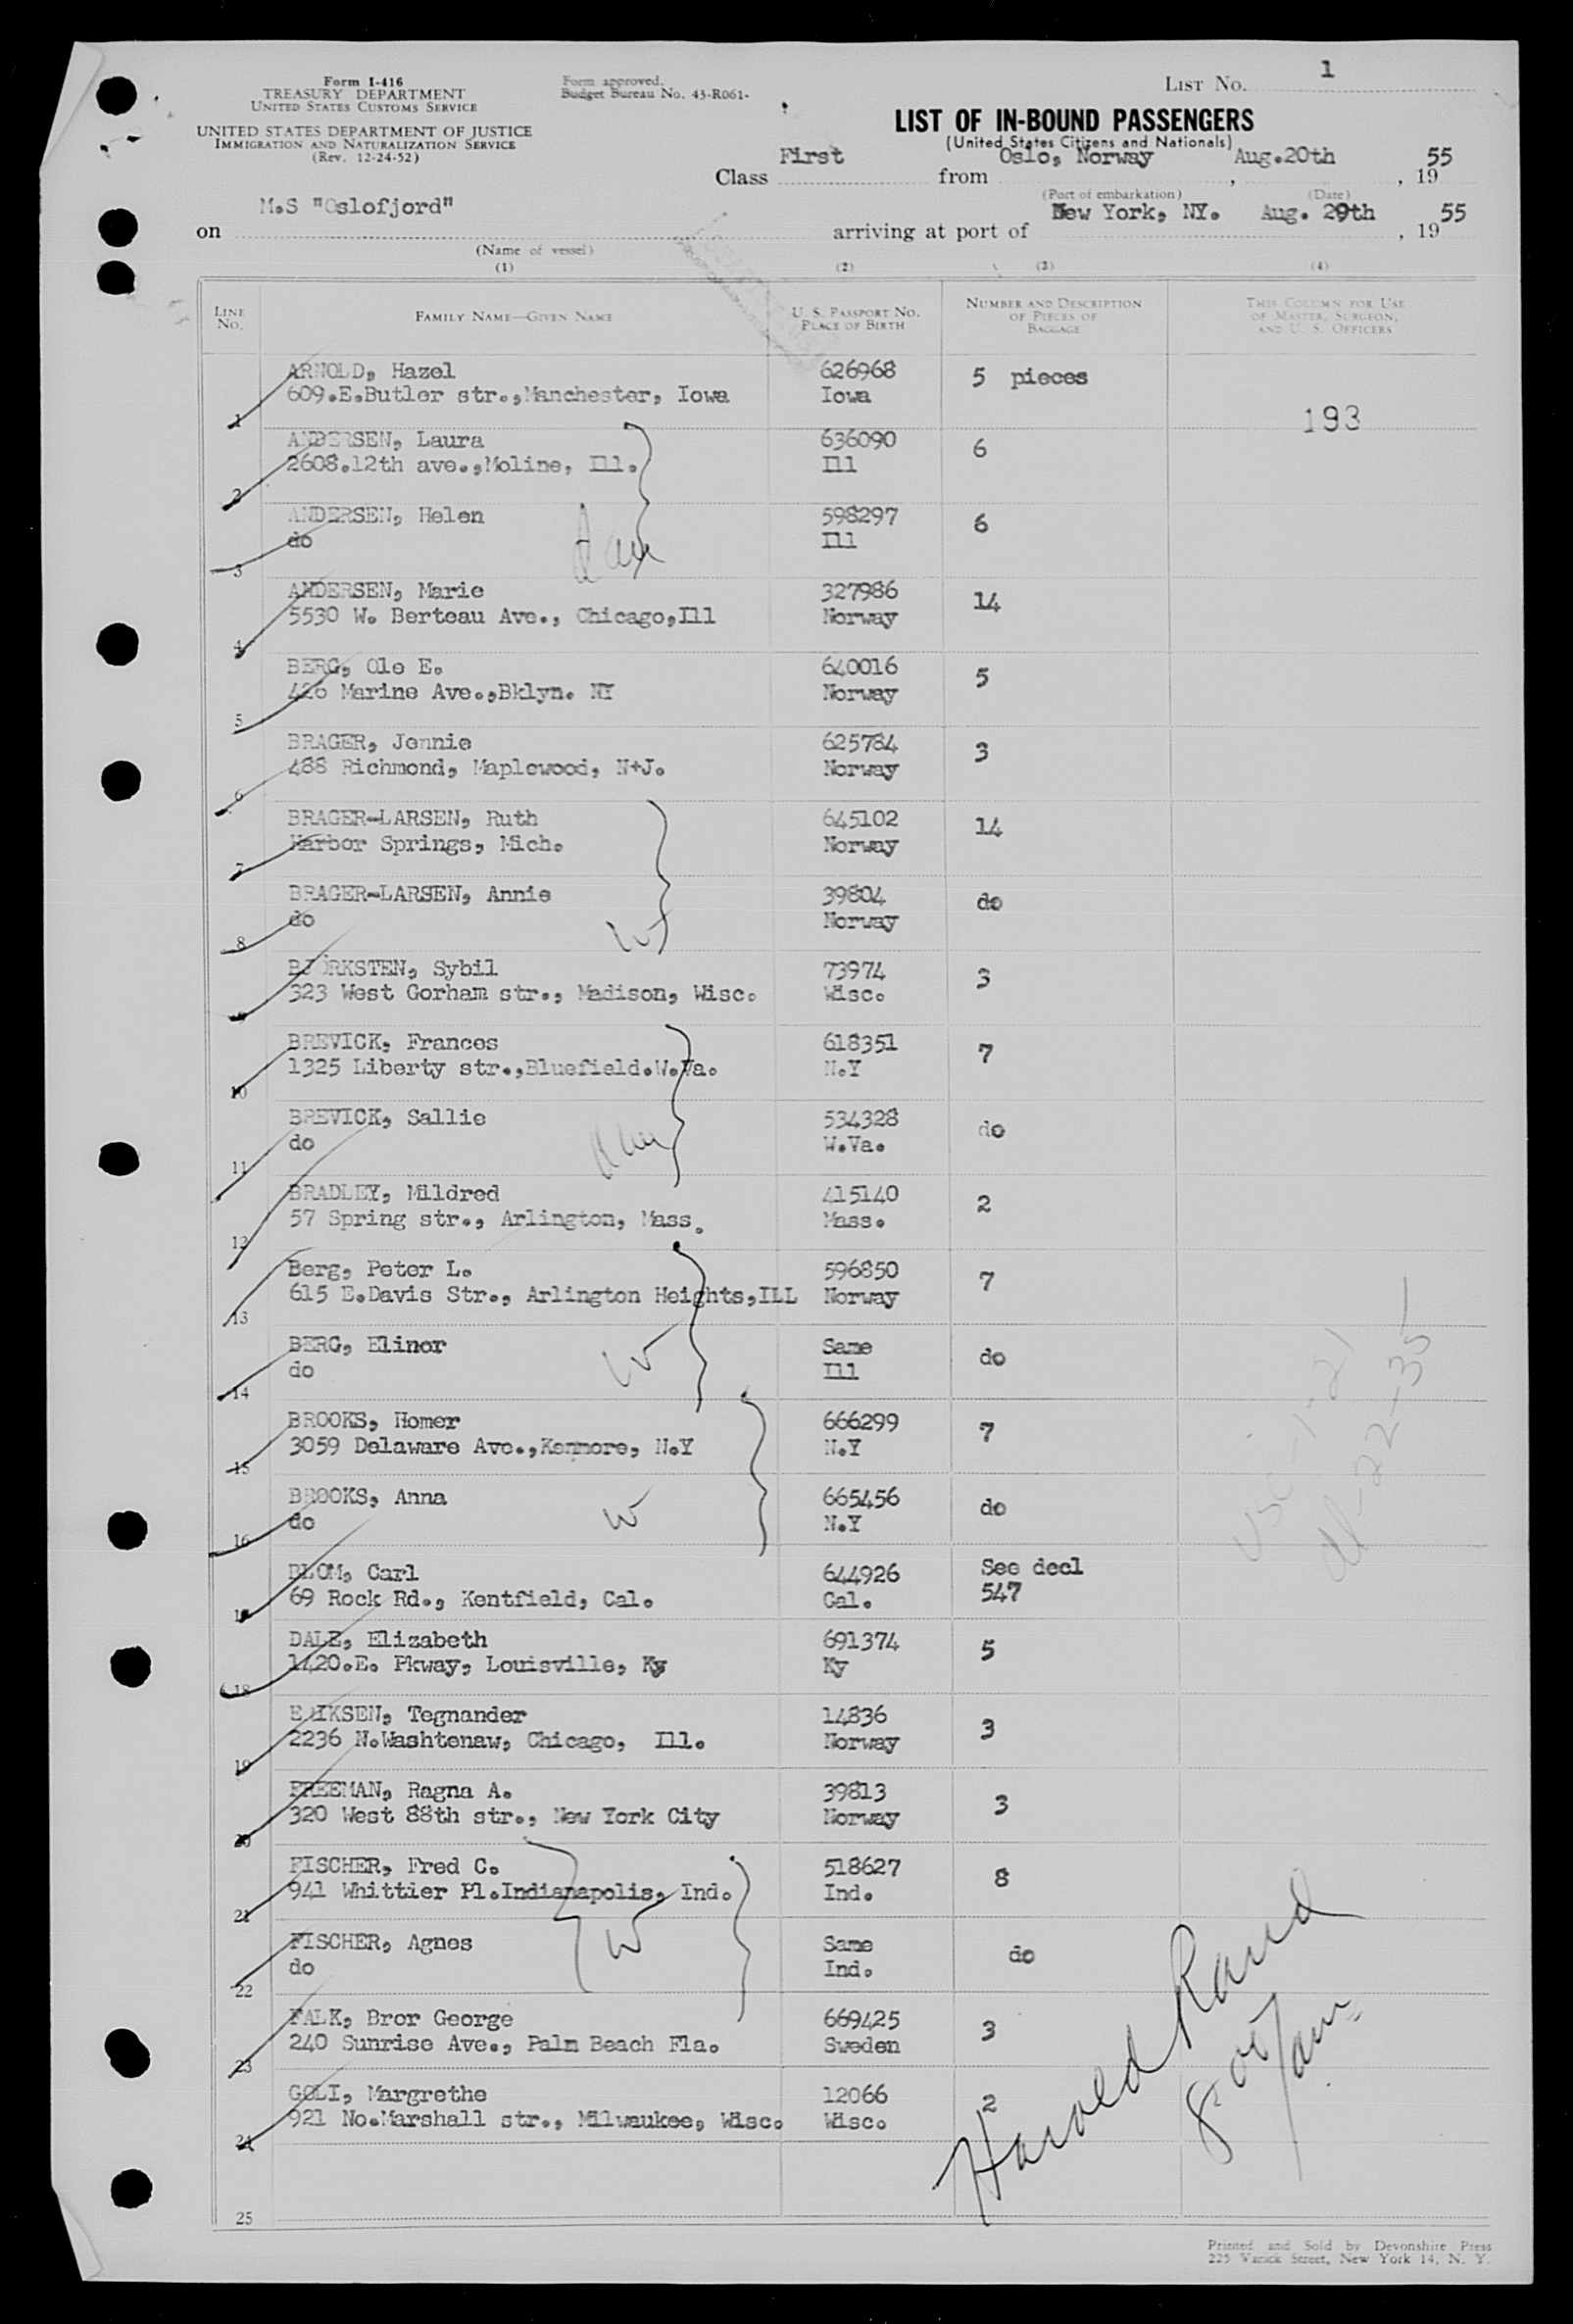 Form I-416
TREASURY DEPARTMENT
UNITED STATES CUSTOMS SERVICE
UNITED STATES DEPARTMENT OF JUSTICE
IMMIGRATION AND NATURALIZATION SERVICE
(Rev. 12-24-52)
Form approved.
Budget Bureau No. 43-R061-
LIST NO. 1
LIST OF IN-BOUND PASSENGERS
(United States Citizens and Nationals)
Class First from Oslo, Norway, Aug.20th, 19 55
(Port of embarkation) (Date)
on M.S "Oslofjord" arriving at port of New York, NY. Aug. 29th, 19 55
(Name of vessel)
(1) (2) (3) (4)
LINE NO. FAMILY NAME—GIVEN NAME U. S. PASSPORT NO. PLACE OF BIRTH NUMBER AND DESCRIPTION OF PIECES OF BAGGAGE THIS COLUMN FOR USE OF MASTER, SURGEON, AND U. S. OFFICERS
ARNOLD, Hazel 626968 5 pieces
1 609.E.Butler str.,Manchester, Iowa Iowa
193
ANDERSEN, Laura 636090 6
2 2608.12th ave.,Moline, Ill. Ill
ANDERSEN, Helen 598297 6
3 do Ill
ANDERSEN, Marie 327986 14
4 5530 W. Berteau Ave., Chicago,Ill Norway
BERG, Ole E. 640016 5
5 426 Marine Ave.,Bklyn. NY Norway
BRAGER, Jennie 625784 3
6 488 Richmond, Maplewood, N+J. Norway
BRAGER-LARSEN, Ruth 645102 14
7 Harbor Springs, Mich. Norway
BRAGER-LARSEN, Annie 39804 do
8 do Norway
W
BJORKSTEN, Sybil 73974 3
9 323 West Gorham str., Madison, Wisc. Wisc.
BREVICK, Frances 618351 7
10 1325 Liberty str.,Bluefield.W.Va. N.Y
BREVICK, Sallie 534328 do
11 do W.Va.
BRADLEY, Mildred 415140 2
12 57 Spring str., Arlington, Mass. Mass.
Berg, Peter L. 596850 7
13 615 E.Davis Str., Arlington Heights,ILL Norway
BERG, Elinor Same do
14 do Ill
W
BROOKS, Homer 666299 7
15 3059 Delaware Ave.,Kenmore, N.Y N.Y
BROOKS, Anna 665456 do
16 do N.Y
W
BLOM, Carl 644926 See decl
17 69 Rock Rd., Kentfield, Cal. Cal. 547
DALE, Elizabeth 691374 5
18 1420.E. Pkway, Louisville, Ky Ky
ERIKSEN, Tegnander 14836 3
19 2236 N.Washtenaw, Chicago, Ill. Norway
FREEMAN, Ragna A. 39813 3
20 320 West 88th str., New York City Norway
FISCHER, Fred C. 518627 8
21 941 Whittier Pl.Indianapolis, Ind. Ind.
FISCHER, Agnes Same do
22 do Ind.
W
FALK, Bror George 669425 3
23 240 Sunrise Ave., Palm Beach Fla. Sweden
GOLI, Margrethe 12066 2
24 921 No.Marshall str., Milwaukee, Wisc. Wisc.
25
Harold Rand
8 00/am
Printed and Sold by Devonshire Press
225 Varick Street, New York 14, N. Y.